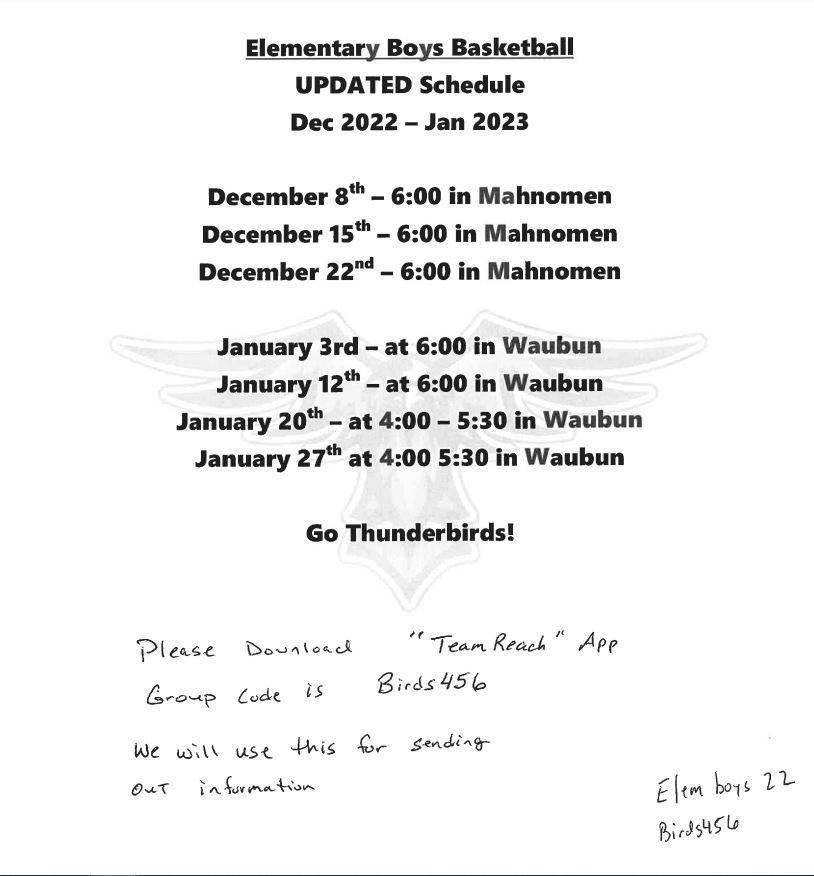 Elementary Boys Basketball
UPDATED Schedule
Dec 2022 – Jan 2023
December 8th – 6:00 in Mahnomen
December 15th – 6:00 in Mahnomen
December 22nd – 6:00 in Mahnomen
January 3rd – at 6:00 in Waubun
January 12th – at 6:00 in Waubun
January 20th – at 4:00 – 5:30 in Waubun
January 27th at 4:00 5:30 in Waubun
Go Thunderbirds!
Please Download "TeamReach" App
Group Code is Birds456
We will use this for sending
out information
Elem boys 22
Birds456